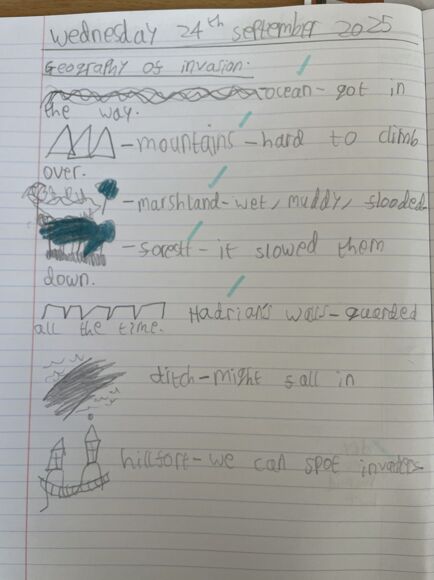 Wednesday 24th september 2025
Geography of invasion.
ocean- got in
the way.
-mountains -hard to climb
over.
-marshland-wet, muddy, slooded.
-sorestt - it slowed them
down.
Hadrian's walls-guarded
all the time.
ditch-might sall in
hillsort-we can spot invaders